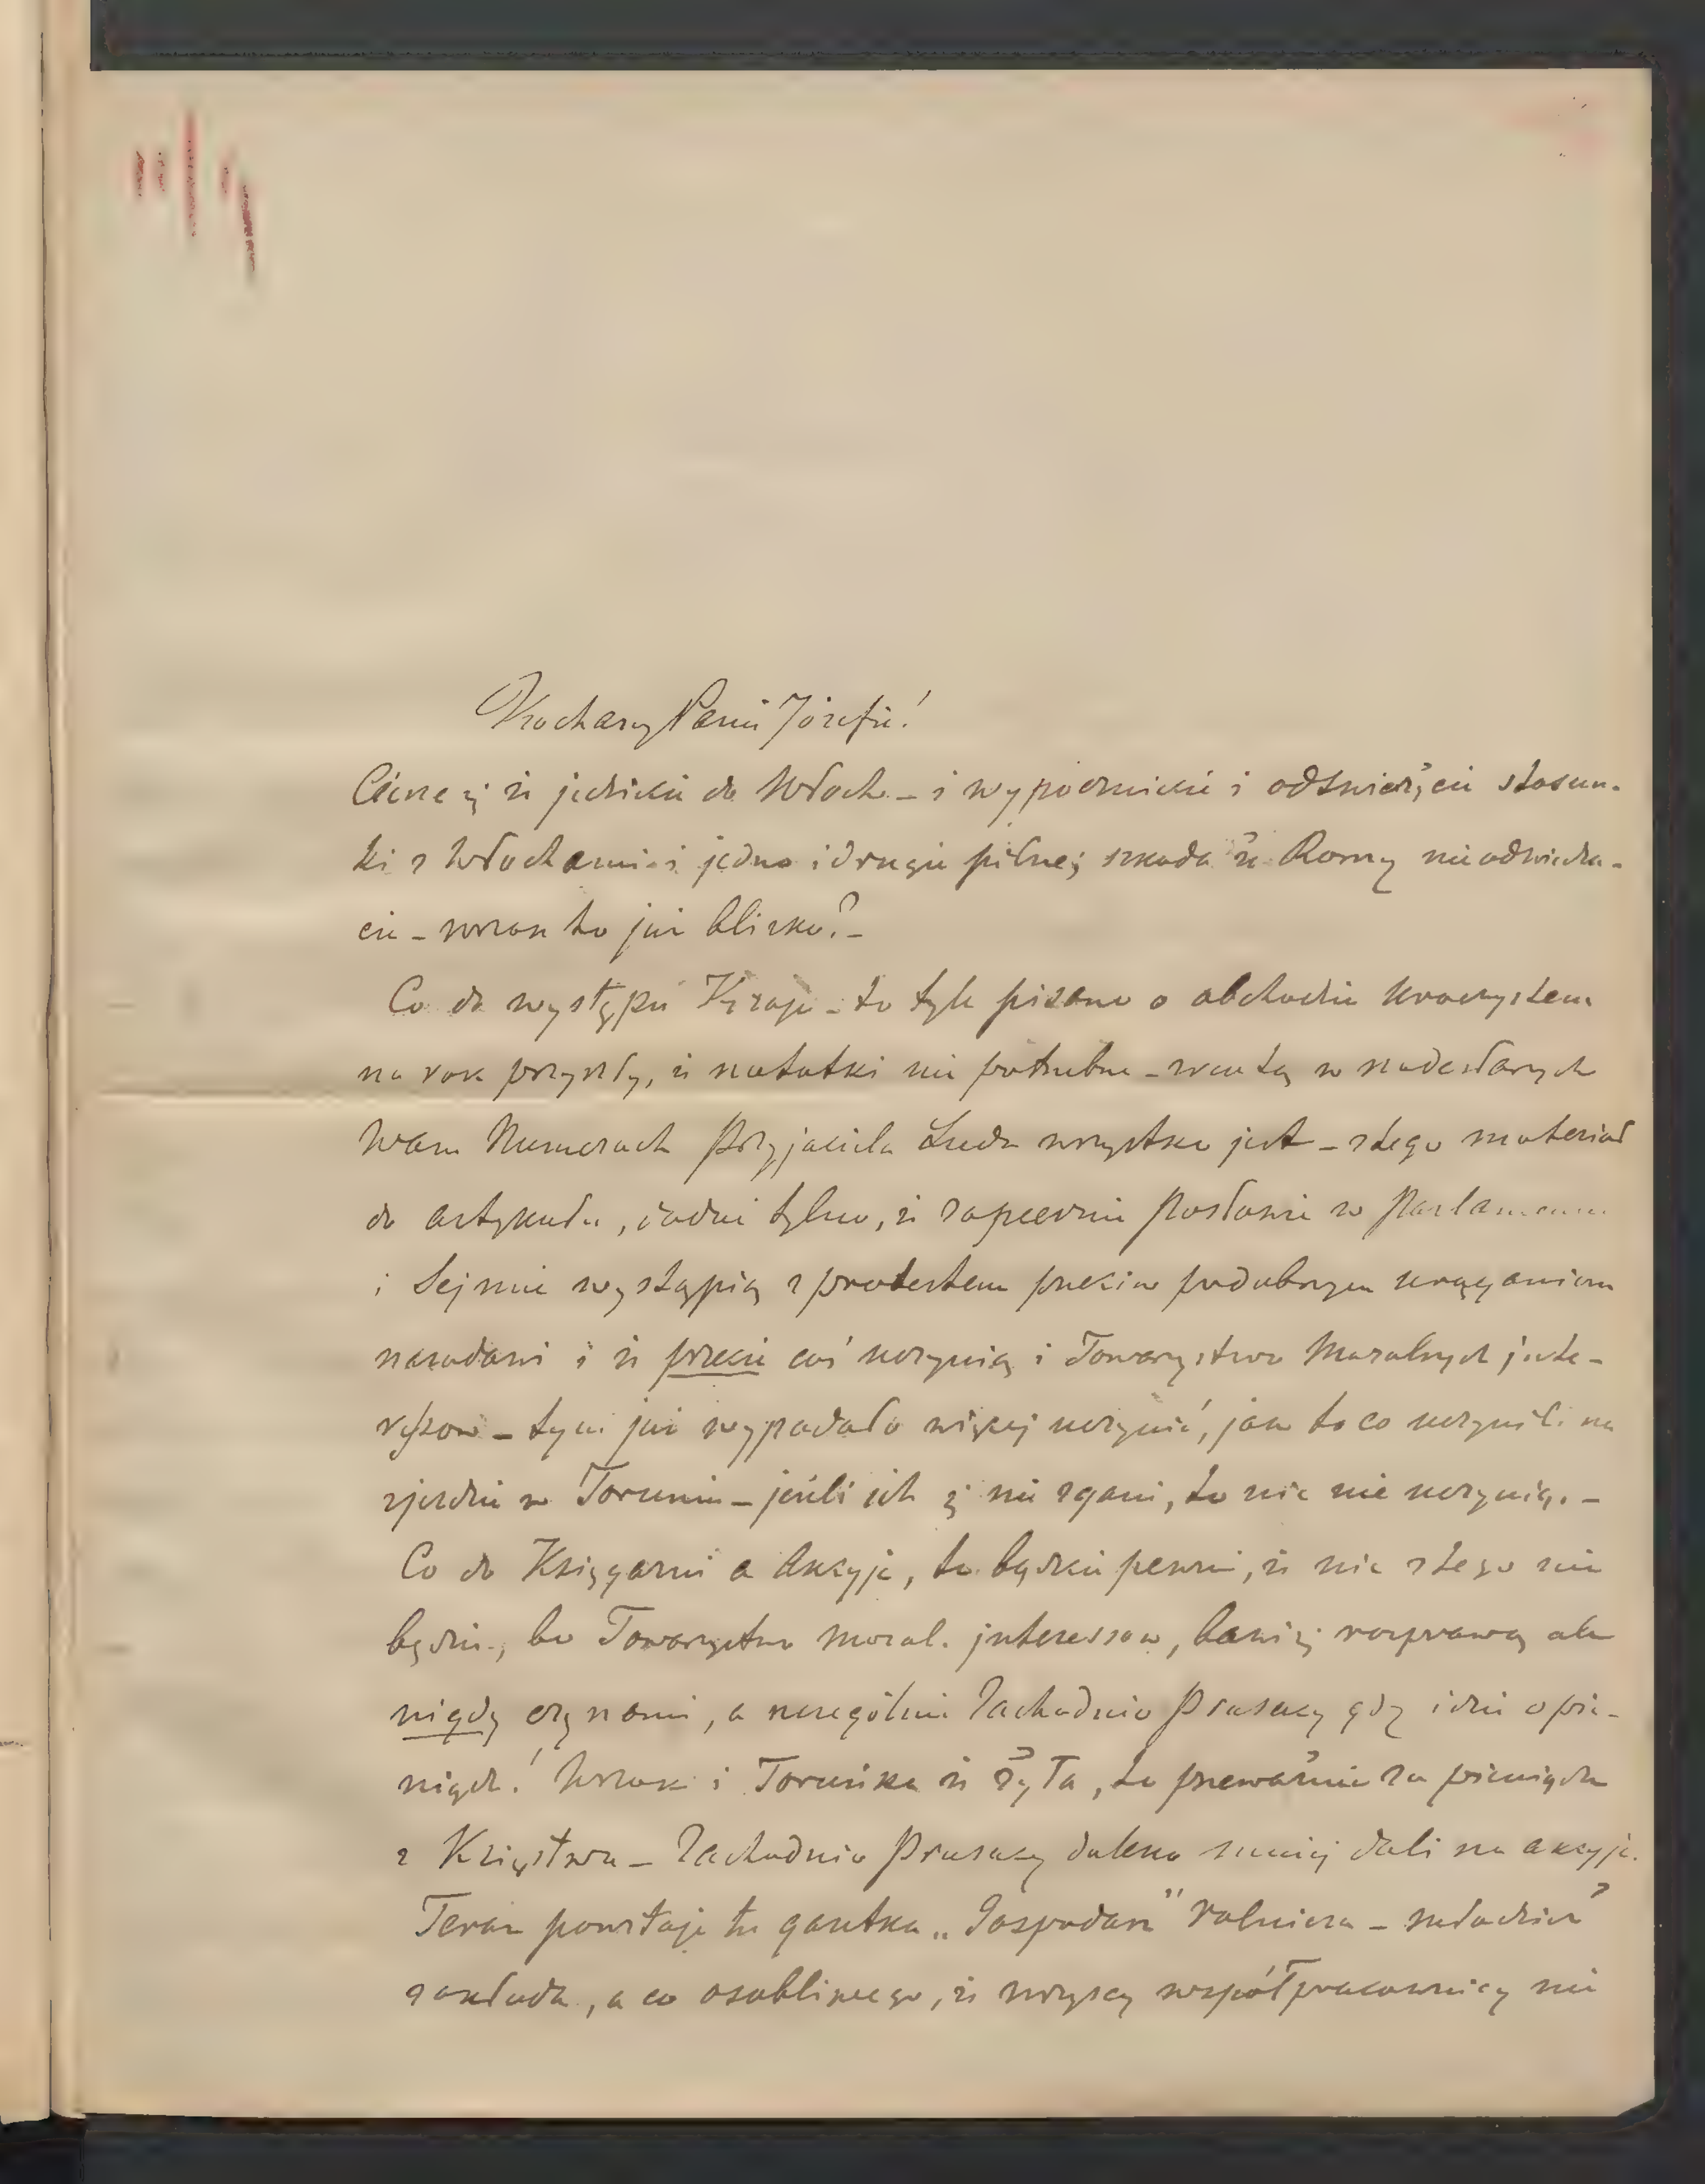 Kochany Panie Józefie!
Cieszę się że jedziecie do Włoch – i wypoczniecie i odświeżycie stosun-
ki z Włochami i jedno i drugie pilne; szkoda że Romy nie odwiedza-
cie – wszak to już blisko? –
Co do występu Kraju – to tyle pisano o obchodzie uroczystem
na rok przyszły, że notatki nie potrzebne – zresztą w nadesłanych
Wam Numerach Przyjaciela Ludu wszystko jest – z tego materiał
do artykułu, tylko, że zapewnie Posłowie w Parlamencie
i Sejmie wystąpią z protestem przeciw podobnym urąganiom
narodowi i że przecie coś uczynią i Towarzystwo Moralnych inte-
ressow – tym już wypadało więcej uczynić, jak to co uczynili na
zjeździe w Toruniu – jeśli ich się nie zgani, to nic nie uczynią. –
Co do Księgarni a Akcyje, to bądźcie pewni, że nic z tego nie
będzie, bo Towarzystwo moral. interessow, bawi się rozprawą ale
nigdy czynami, a szczególnie Zachodnio Prusacy gdy idzie o pie-
niądz! Wszak i Toruńska że żyła, to przeważnie za pieniądze
z Księstwa – Zachodnio Prusacy daleko mniej dali na akcyje.
Teraz powstaje tu gazetka „Gospodarz" rolnicza –
zakłada, a co osobliwego, że wszyscy współpracownicy nie